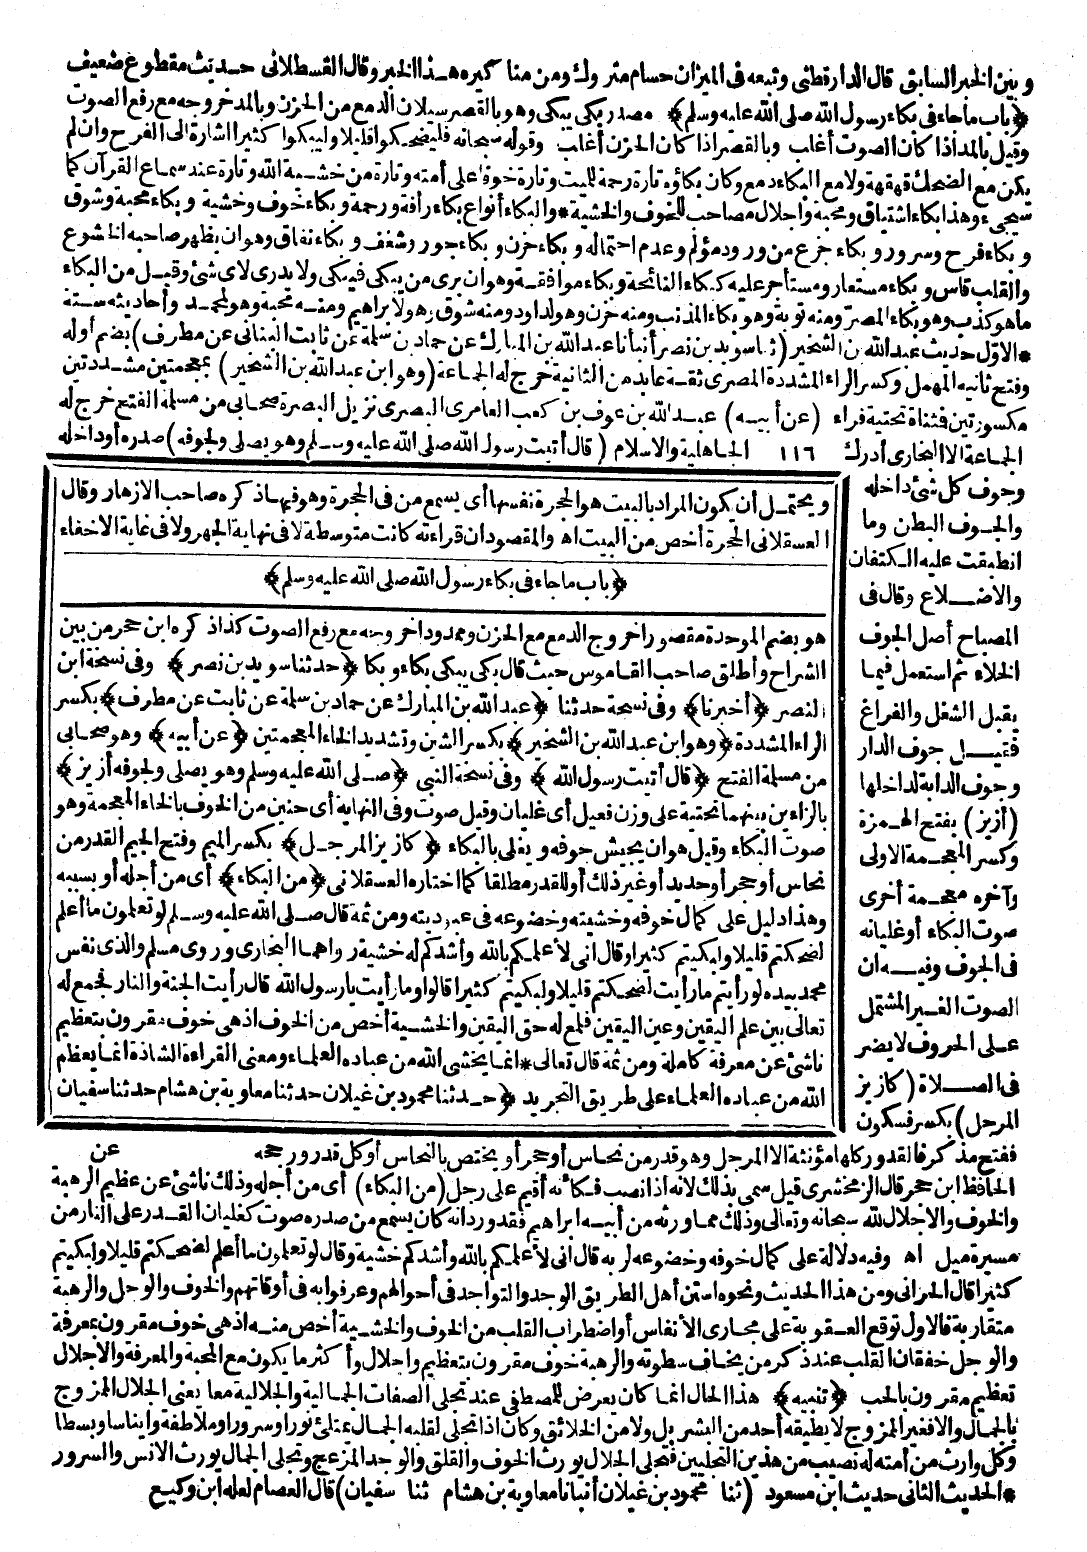 وبين الخبر السابق قال الدارقطني وتبعه في الميزان حسام متروك ومن مناكيره هذا الخبر وقال القسطلاني حديث مقطوع ضعيف
﴿باب ماجاء في بكاء رسول الله صلى الله عليه وسلم﴾ مصدر بكى يبكى وهو بالقصر سيلان الدمع من الحزن وبالمد خروجه مع رفع الصوت
وقيل بالمد اذا كان الصوت أغلب وبالقصر اذا كان الحزن أغلب وقوله سبحانه فليضحكوا قليلا وليبكوا كثيرا اشارة الى الفرح وان لم
يكن مع الضحك قهقهة ولا مع البكاء دمع وكان بكاؤه تارة رحمة للميت وتارة خوفا على أمته وتارة من خشية الله وتارة عند سماع القرآن كما
سيجىء وهذا بكاء اشتياق ومحبة واجلال مصاحب للخوف والخشية * والبكاء أنواع بكاء رأفة ورحمة وبكاء خوف وخشية وبكاء محبة وشوق
وبكاء فرح وسرور وبكاء جزع من ورود مؤلم وعدم احتماله وبكاء حزن وبكاء جور وشغف وبكاء نفاق وهو ان يظهر صاحبه الخشوع
والقلب قاس وبكاء مستعار ومستأجر عليه كبكاء النائحة وبكاء موافقة وهو ان يرى من يبكى فيبكى ولا يدرى لاى شئ وقيل من البكاء
ما هو كذب وهو بكاء المصر ومنه توبة وهو بكاء المذنب ومنه حزن وهو لداود ومنه شوق وهو لابراهيم ومنه محبة وهو لمحمد وأحاديثه ستة
* الاول حديث عبد الله بن الشخير (ثنا سويد بن نصر أنبأنا عبد الله بن المبارك عن حماد بن سلمة عن ثابت البناني عن مطرف) بضم أوله
وفتح ثانيه المهمل وكسر الراء المشددة المصرى ثقة عابد من الثانية خرج له الجماعة (وهو ابن عبد الله بن الشخير) بمعجمتين مشددتين
مكسورتين فثناة تحتية فراء (عن أبيه) عبد الله بن عوف بن كعب العامرى البصرى نزيل البصرة صحابى من مسلمة الفتح خرج له
الجماعة الا البخارى أدرك ١١٦ الجاهلية والاسلام (قال أتيت رسول الله صلى الله عليه وسلم وهو يصلى ولجوفه) صدره أو داخله
وجوف كل شئ داخله
والجوف البطن وما
انطبقت عليه الكتفان
والاضلاع وقال في
المصباح أصل الجوف
الخلاء ثم استعمل فيما
يقبل الشغل والفراغ
فقيل جوف الدار
وجوف الدابة لداخلها
(أزيز) بفتح الهمزة
وكسر المعجمة الاولى
وآخره معجمة أخرى
صوت البكاء أو غليانه
في الجوف وفيه ان
الصوت الغير المشتمل
على الحروف لا يضر
في الصلاة (كأزيز
المرجل) بكسر فسكون
ويحتمل أن يكون المراد بالبيت هو الحجرة نفسها أى يسمع من في الحجرة وهو فيها ذكره صاحب الازهار وقال
العسقلانى الحجرة أخص من البيت اه والمقصود ان قراءته كانت متوسطة لا في نهاية الجهر ولا في غاية الاخفاء
﴿باب ماجاء في بكاء رسول الله صلى الله عليه وسلم﴾
هو بضم الموحدة مقصورا خروج الدمع مع الحزن وممدودا خروجه مع رفع الصوت كذا ذكره ابن حجر من بين
الشراح وأطلق صاحب القاموس حيث قال بكى يبكى بكاء وبكا ﴿حدثنا سويد بن نصر﴾ وفى نسخة ابن
النصر ﴿أخبرنا﴾ وفى نسخة حدثنا ﴿عبد الله بن المبارك عن حماد بن سلمة عن ثابت عن مطرف﴾ بكسر
الراء المشددة ﴿وهو ابن عبد الله بن الشخير﴾ بكسر الشين وتشديد الخاء المعجمتين ﴿عن أبيه﴾ وهو صحابى
من مسلمة الفتح ﴿قال أتيت رسول الله﴾ وفى نسخة النبى ﴿صلى الله عليه وسلم وهو يصلى ولجوفه أزيز﴾
بالزاءين بينهما تحتية على وزن فعيل أى غليان وقيل صوت وفى النهاية أى حنين من الخوف بالخاء المعجمة وهو
صوت البكاء وقيل هو ان يجيش جوفه ويغلى بالبكاء ﴿كأزيز المرجل﴾ بكسر الميم وفتح الجيم القدر من
نحاس أو حجر أو حديد أو غير ذلك أو للقدر مطلقا كما اختاره العسقلانى ﴿من البكاء﴾ أى من أجله أو بسببه
وهذا دليل على كمال خوفه وخشيته وخضوعه في عبوديته ومن ثمة قال صلى الله عليه وسلم لو تعلمون ما أعلم
لضحكتم قليلا ولبكيتم كثيرا وقال انى لأعلمكم بالله وأشدكم له خشية رواهما البخارى وروى مسلم والذى نفس
محمد بيده لو رأيتم ما رأيت لضحكتم قليلا ولبكيتم كثيرا قالوا وما رأيت يا رسول الله قال رأيت الجنة والنار فجمع له
تعالى بين علم اليقين وعين اليقين فلمع له حق اليقين والخشية أخص من الخوف اذ هى خوف مقرون بتعظيم
ناشئ عن معرفة كاملة ومن ثمة قال تعالى * انما يخشى الله من عباده العلماء ومعنى القراءة الشاذة انما يعظم
الله من عباده العلماء على طريق التجريد ﴿حدثنا محمود بن غيلان حدثنا معاوية بن هشام حدثنا سفيان
ففتح مذكر فالقدور كلها مؤنثة الا المرجل وهو قدر من نحاس أو حجر أو يختص بالنحاس أو كل قدر ورجحه عن
الحافظ ابن حجر قال الزمخشرى قيل سمى بذلك لانه اذا نصب فكأنه أقيم على رجل (من البكاء) أى من أجله وذلك ناشئ عن عظيم الرهبة
والخوف والاجلال لله سبحانه وتعالى وذلك مما ورثه من أبيه ابراهيم فقد ورد انه كان يسمع من صدره صوت كغليان القدر على النار من
مسيرة ميل اه وفيه دلالة على كمال خوفه وخضوعه لربه قال انى لأعلمكم بالله وأشدكم خشية وقال لو تعلمون ما أعلم لضحكتم قليلا ولبكيتم
كثيرا قال الحرانى ومن هذا الحديث ونحوه استن أهل الطريق الوجد والتواجد في أحوالهم وعرفوا به في أوقاتهم والخوف والوجل والرهبة
متقاربة فالاول توقع العقوبة على مجارى الأنفاس أو اضطراب القلب من الخوف والخشية أخص منه اذ هى خوف مقرون بمعرفة
والوجل خفقان القلب عند ذكر من يخاف سطوته والرهبة خوف مقرون بتعظيم واجلال وأكثر ما يكون مع المحبة والمعرفة والاجلال
تعظيم مقرون بالحب ﴿تنبيه﴾ هذا الحال انما كان يعرض للمصطفى عند تجلى الصفات الجمالية والجلالية معا يعنى الجلال الممزوج
بالجمال والا فغير الممزوج لا يطيقه أحد من البشر بل ولا من الخلائق وكان اذا تجلى لقلبه الجمال يمتلئ نورا وسرورا وملاطفة وايناسا وبسطا
وكل وارث من أمته له نصيب من هذين التجليين فتجلى الجلال يورث الخوف والقلق والوجد المزعج وتجلى الجمال يورث الانس والسرور
* الحديث الثانى حديث ابن مسعود (ثنا محمود بن غيلان أنبأنا معاوية بن هشام ثنا سفيان) قال العصام لعله ابن وكيع